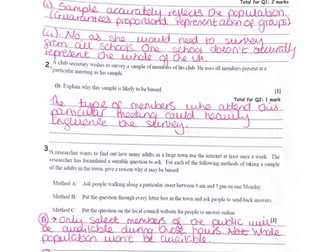 Total for Q1: 2 marks
(i). Sample accurately reflects the population.
(Guarantees proportional representation of groups)
(ii). No, as she would need to survey
from all schools. One school doesn't accurately
represent the whole of the UK.
2. A club secretary wishes to survey a sample of members of his club. He uses all members present at a
particular meeting as his sample.
(i) Explain why this sample is likely to be biased.
[1]
Total for Q2: 1 mark
The type of members who attend this
particular meeting could heavily
influence the survey.
3. A researcher wants to find out how many adults in a large town use the internet at least once a week. The
researcher has formulated a suitable question to ask. For each of the following methods of taking a sample
of the adults in the town, give a reason why it may be biased.
Method A: Ask people walking along a particular street between 9 am and 5 pm on one Monday.
Method B: Put the question through every letter box in the town and ask people to send back answers
Method C: Put the question on the local council website for people to answer online
[3]
(A) → Only select members of the public will
be available during these hours. Not whole
population won't be available.